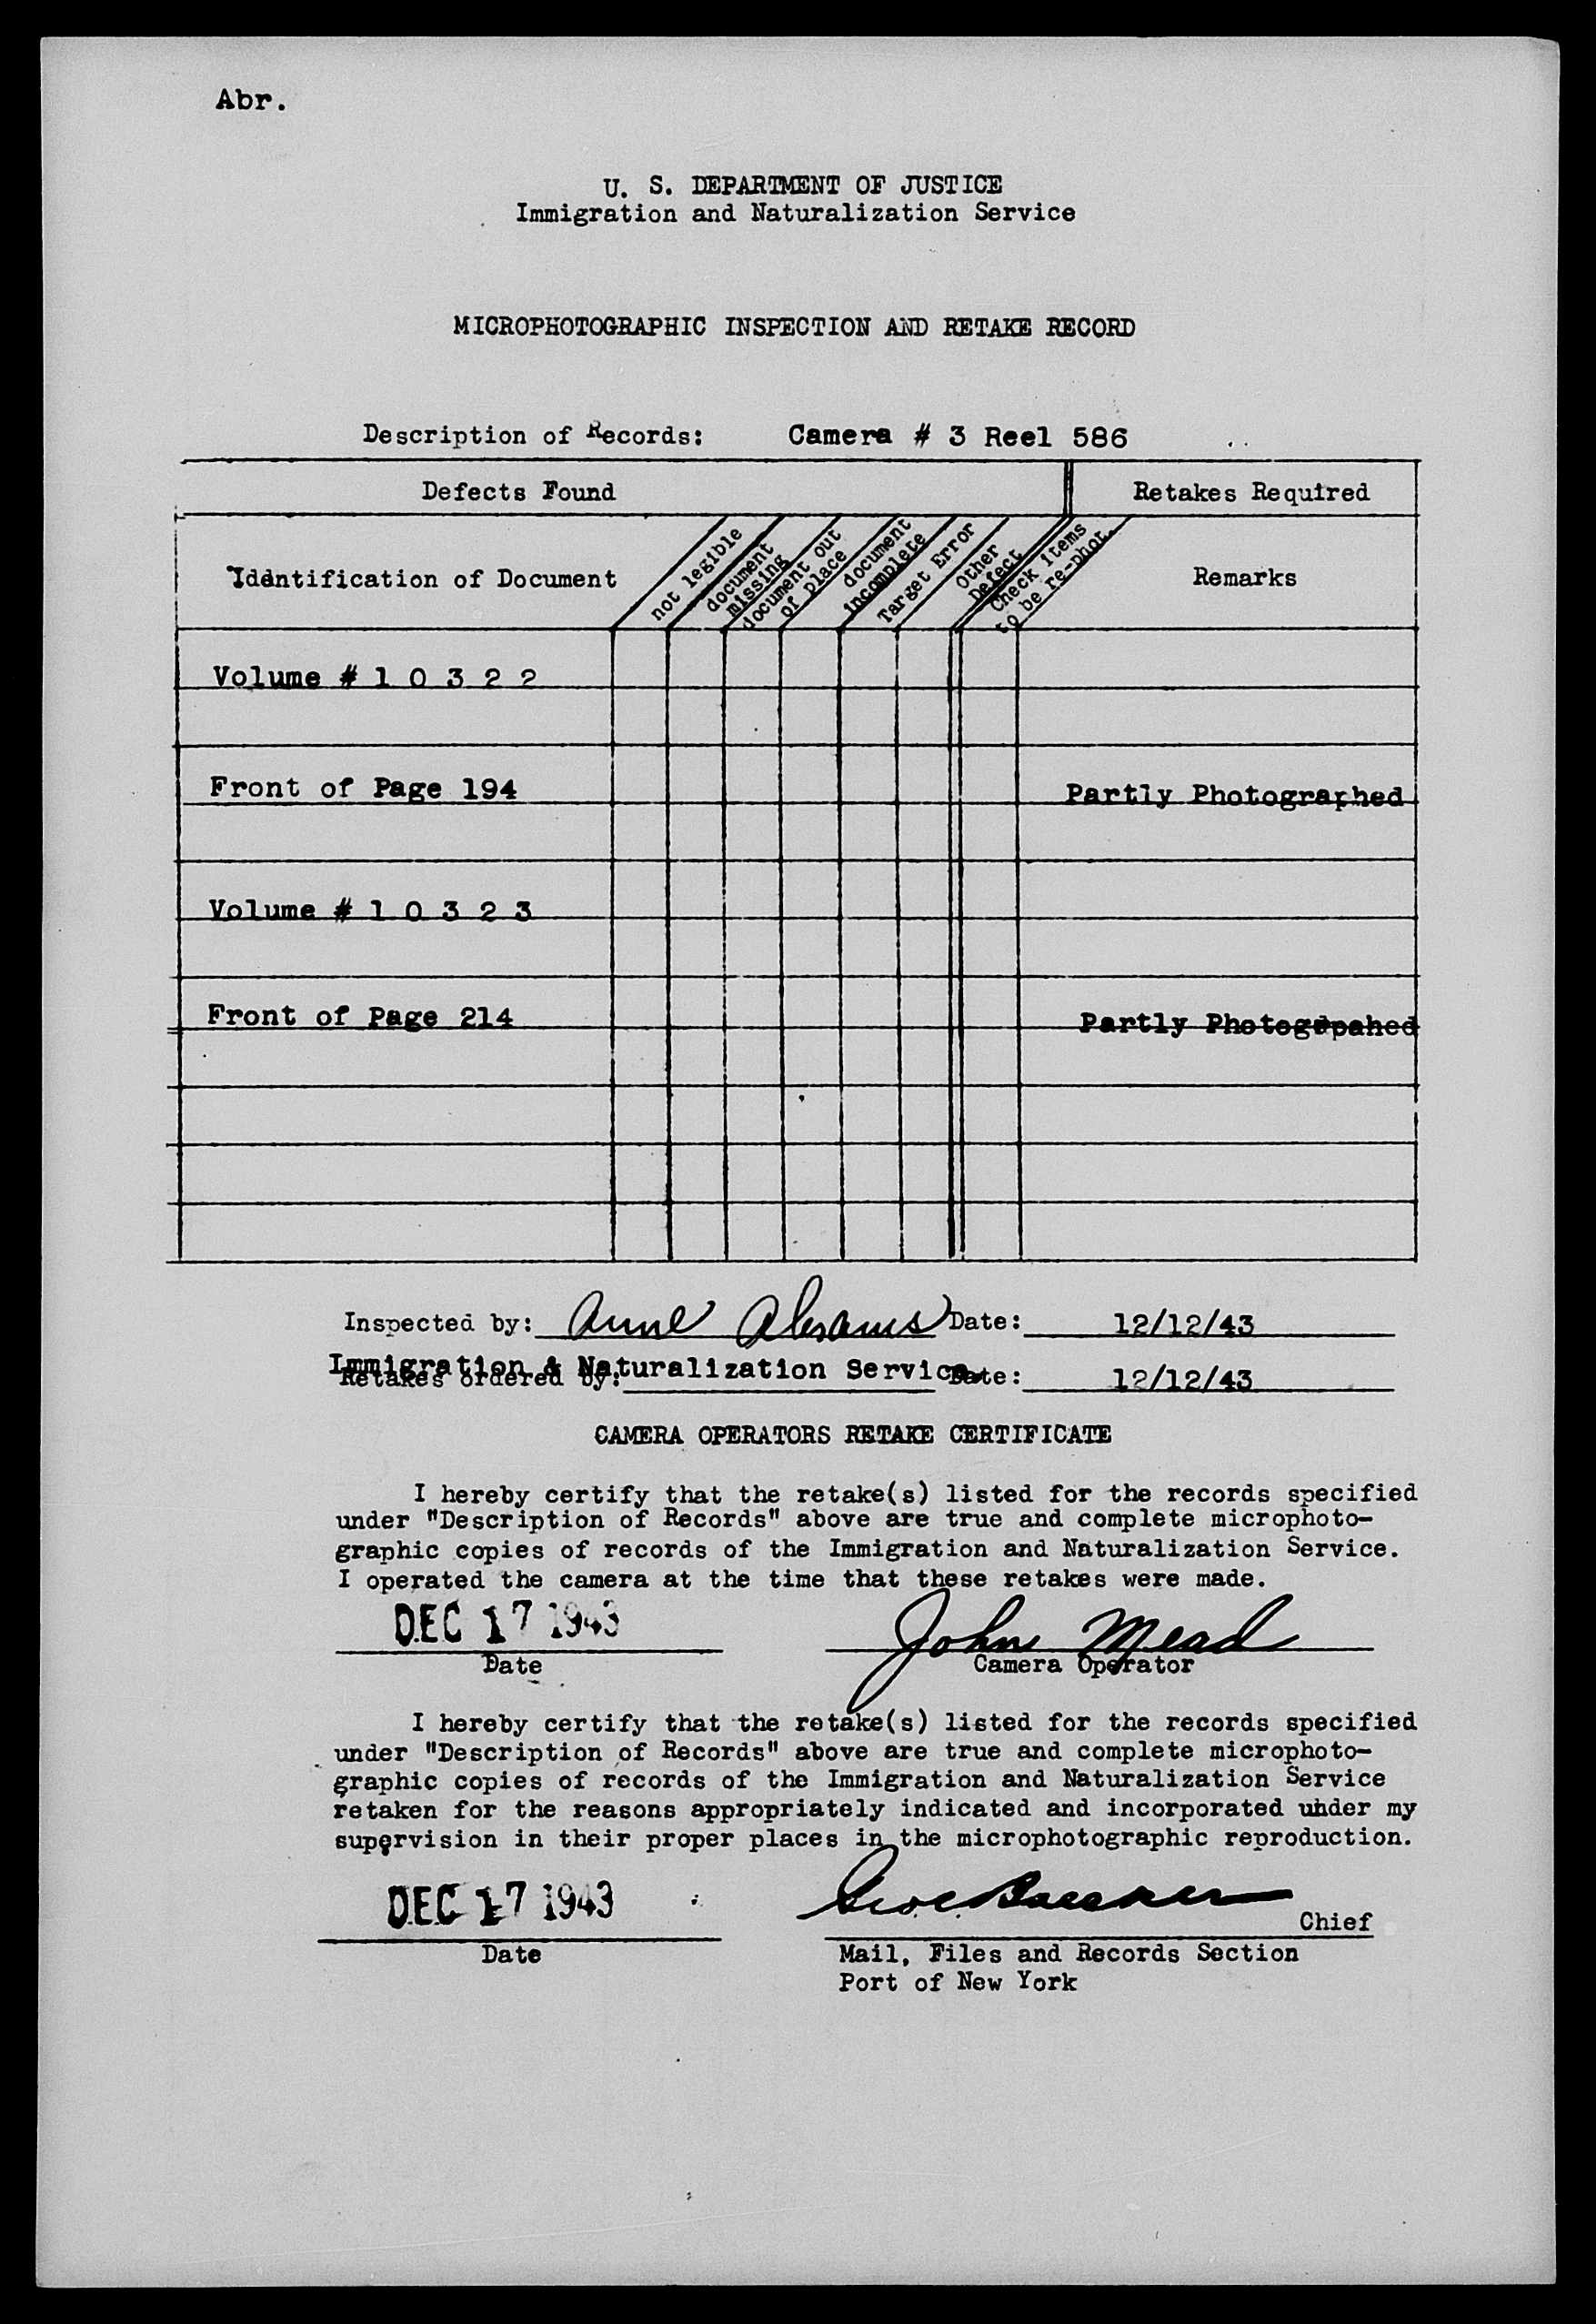 Abr.
U. S. DEPARTMENT OF JUSTICE
Immigration and Naturalization Service
MICROPHOTOGRAPHIC INSPECTION AND RETAKE RECORD
Description of Records: Camera # 3 Reel 586
Defects Found Retakes Required
Identification of Document
not legible
document
missing
document out
of place
document
incomplete
Target Error
Other
Defect
Check items
to be re-phot.
Remarks
Volume # 1 0 3 2 2
Front of Page 194 Partly Photographed
Volume # 1 0 3 2 3
Front of Page 214 Partly
Inspected by: Anne Abrams Date: 12/12/43
Immigration & Naturalization Service.
Retakes ordered by: Date: 12/12/43
CAMERA OPERATORS RETAKE CERTIFICATE
I hereby certify that the retake(s) listed for the records specified
under "Description of Records" above are true and complete microphoto-
graphic copies of records of the Immigration and Naturalization Service.
I operated the camera at the time that these retakes were made.
DEC 17 1943 John Mead
Date Camera Operator
I hereby certify that the retake(s) listed for the records specified
under "Description of Records" above are true and complete microphoto-
graphic copies of records of the Immigration and Naturalization Service
retaken for the reasons appropriately indicated and incorporated under my
supervision in their proper places in the microphotographic reproduction.
DEC 17 1943
Chief
Date Mail, Files and Records Section
Port of New York